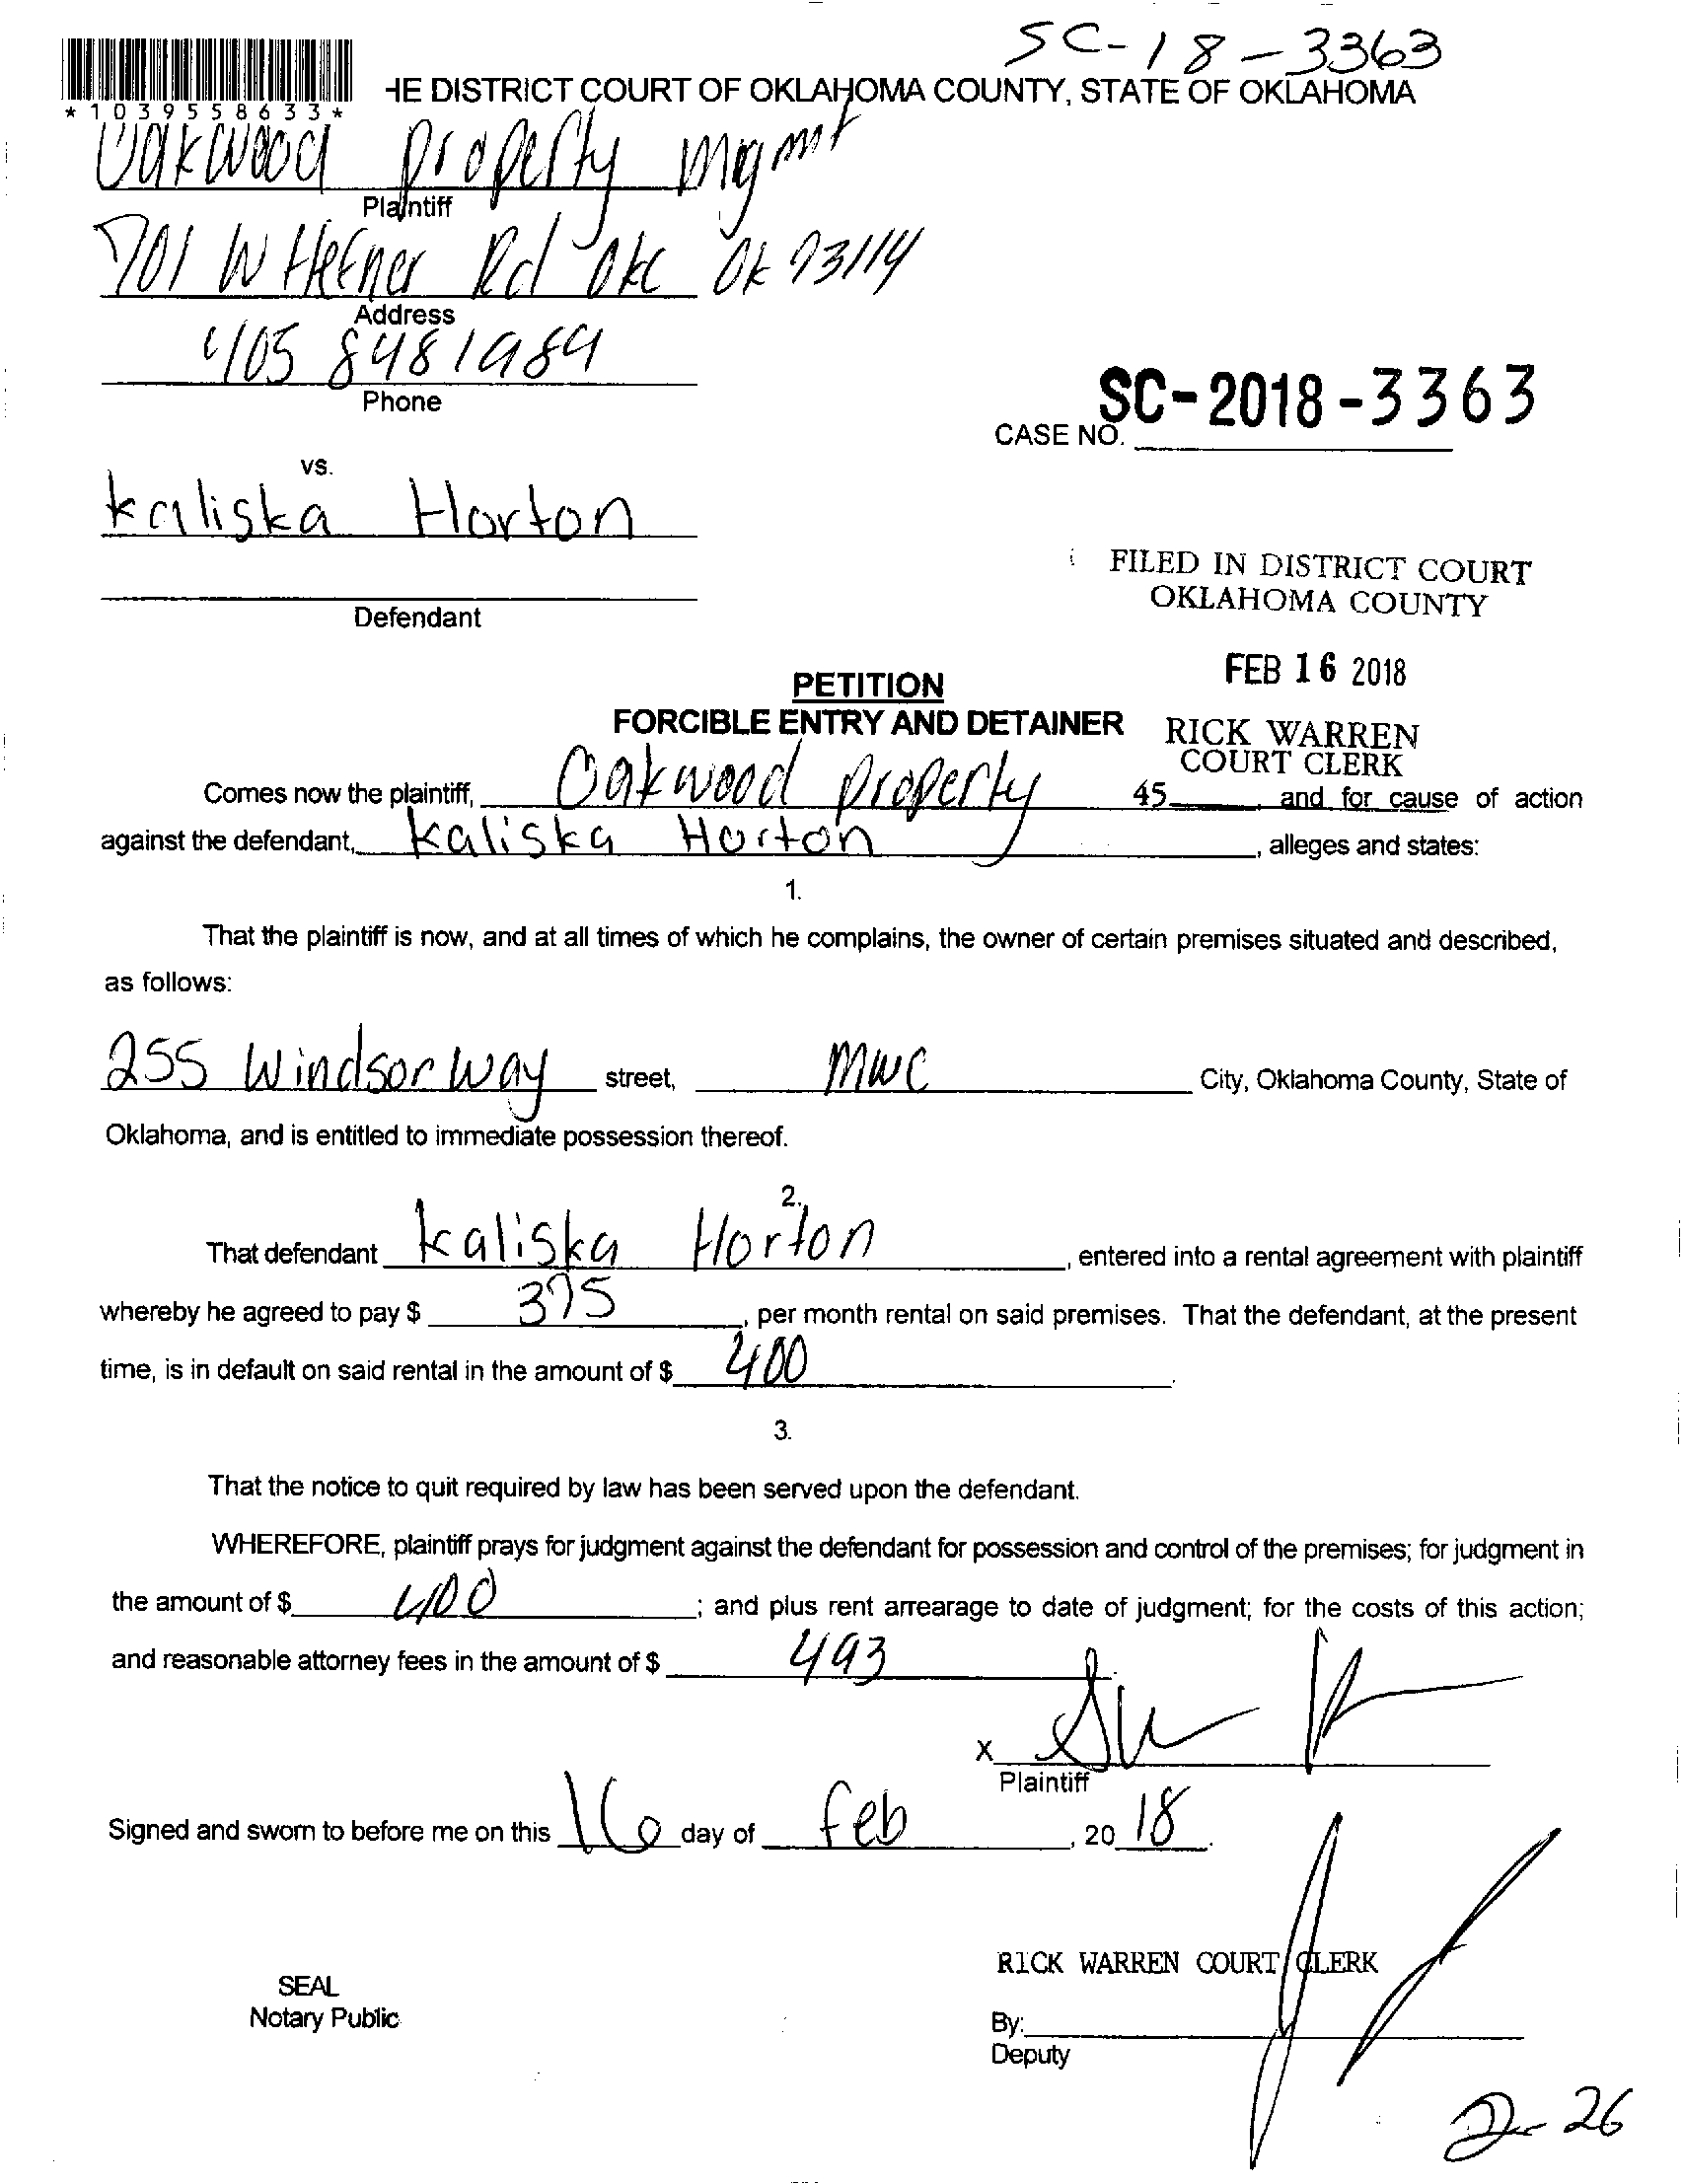 SC-18-3363
HE DISTRICT COURT OF OKLAHOMA COUNTY, STATE OF OKLAHOMA
*1039558633*
Oakwood property mgmt
Plaintiff
701 W Hefner Rd Okc Ok 73114
Address
405 848 1989
Phone
SC-2018-3363
CASE NO.
vs.
kaliska Horton
FILED IN DISTRICT COURT
OKLAHOMA COUNTY
Defendant
FEB 16 2018
PETITION
FORCIBLE ENTRY AND DETAINER
RICK WARREN
COURT CLERK
Comes now the plaintiff, Oakwood property 45 and for cause of action
against the defendant, kaliska Horton, alleges and states:
1.
That the plaintiff is now, and at all times of which he complains, the owner of certain premises situated and described,
as follows:
255 Windsor way street, mwc City, Oklahoma County, State of
Oklahoma, and is entitled to immediate possession thereof.
2.
That defendant kaliska Horton, entered into a rental agreement with plaintiff
whereby he agreed to pay $ 375, per month rental on said premises. That the defendant, at the present
time, is in default on said rental in the amount of $ 400.
3.
That the notice to quit required by law has been served upon the defendant.
WHEREFORE, plaintiff prays for judgment against the defendant for possession and control of the premises; for judgment in
the amount of $ 400; and plus rent arrearage to date of judgment; for the costs of this action;
and reasonable attorney fees in the amount of $ 493
X
Plaintiff
Signed and sworn to before me on this 16 day of feb, 20 18.
RICK WARREN COURT CLERK
SEAL
Notary Public
By:
Deputy
26